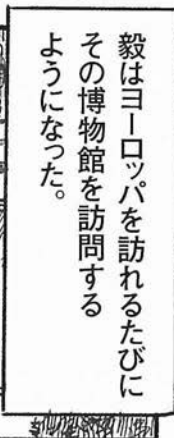 毅はヨーロッパを訪れるたびに
その博物館を訪問する
ようになった。